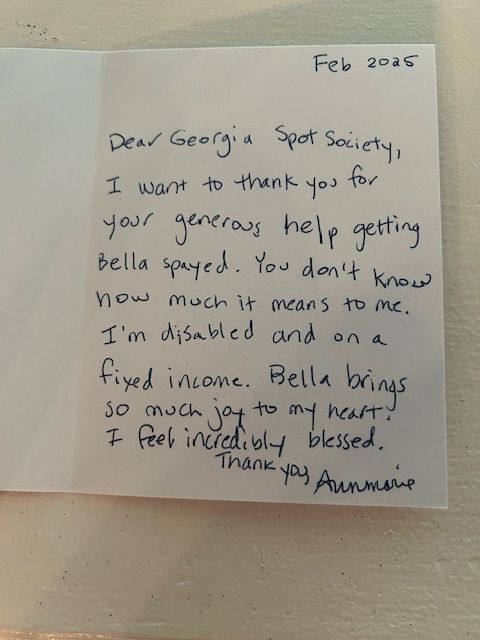 Feb 2025
Dear Georgia Spot Society,
I want to thank you for
your generous help getting
Bella spayed. You don't know
how much it means to me.
I'm disabled and on a
fixed income. Bella brings
so much joy to my heart.
I feel incredibly blessed.
Thank you, Annmarie